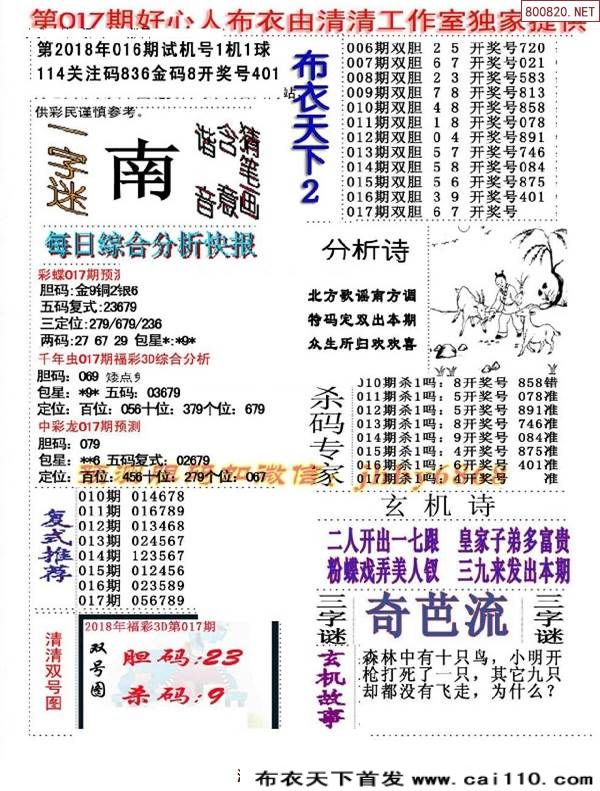 800820.NET
第017期好心人布衣由清清工作室独家提供
第2018年016期试机号1机1球
114关注码836金码8开奖号401
站
供彩民谨慎参考。
一字迷
南
谐音
含意
猜笔画
布衣天下2
006期双胆 2 5 开奖号720
007期双胆 6 7 开奖号021
008期双胆 2 3 开奖号583
009期双胆 7 8 开奖号813
010期双胆 4 8 开奖号858
011期双胆 1 8 开奖号078
012期双胆 0 4 开奖号891
013期双胆 5 7 开奖号746
014期双胆 5 8 开奖号084
015期双胆 5 6 开奖号875
016期双胆 3 9 开奖号401
017期双胆 6 7 开奖号
每日综合分析快报
彩蝶017期预测
胆码:金9铜2银6
五码复式:23679
三定位:279/679/236
两码:27 67 29 包星*:*9*
千年虫017期福彩3D综合分析
胆码: 069 矮点乡
包星: *9* 五码: 03679
定位: 百位: 056十位: 379个位: 679
中彩龙017期预测
胆码: 079
包星: **6 五码: 02679
定位: 百位: 456十位: 279个位: 067
分析诗
北方歌谣南方调
特码定双出本期
众生所归欢欢喜
杀码专家
010期杀1吗: 8开奖号 858错
011期杀1吗: 5开奖号 078准
012期杀1吗: 5开奖号 891准
013期杀1吗: 8开奖号 746准
014期杀1吗: 9开奖号 084准
015期杀1吗: 4开奖号 875准
016期杀1吗: 6开奖号 401准
017期杀1吗: 4开奖号 准
复式推荐
010期 014678
011期 016789
012期 013468
013期 024567
014期 123567
015期 012456
016期 023589
017期 056789
玄机诗
二人开出一七跟 皇家子弟多富贵
粉蝶戏弄美人钗 三九来发出本期
三字谜
奇芭流
三字谜
清清双号图
2018年福彩3D第017期
双号图
胆码:23
杀码:9
玄机故事
森林中有十只鸟，小明开
枪打死了一只，其它九只
却都没有飞走，为什么？
布衣天下首发 www.cai110.com